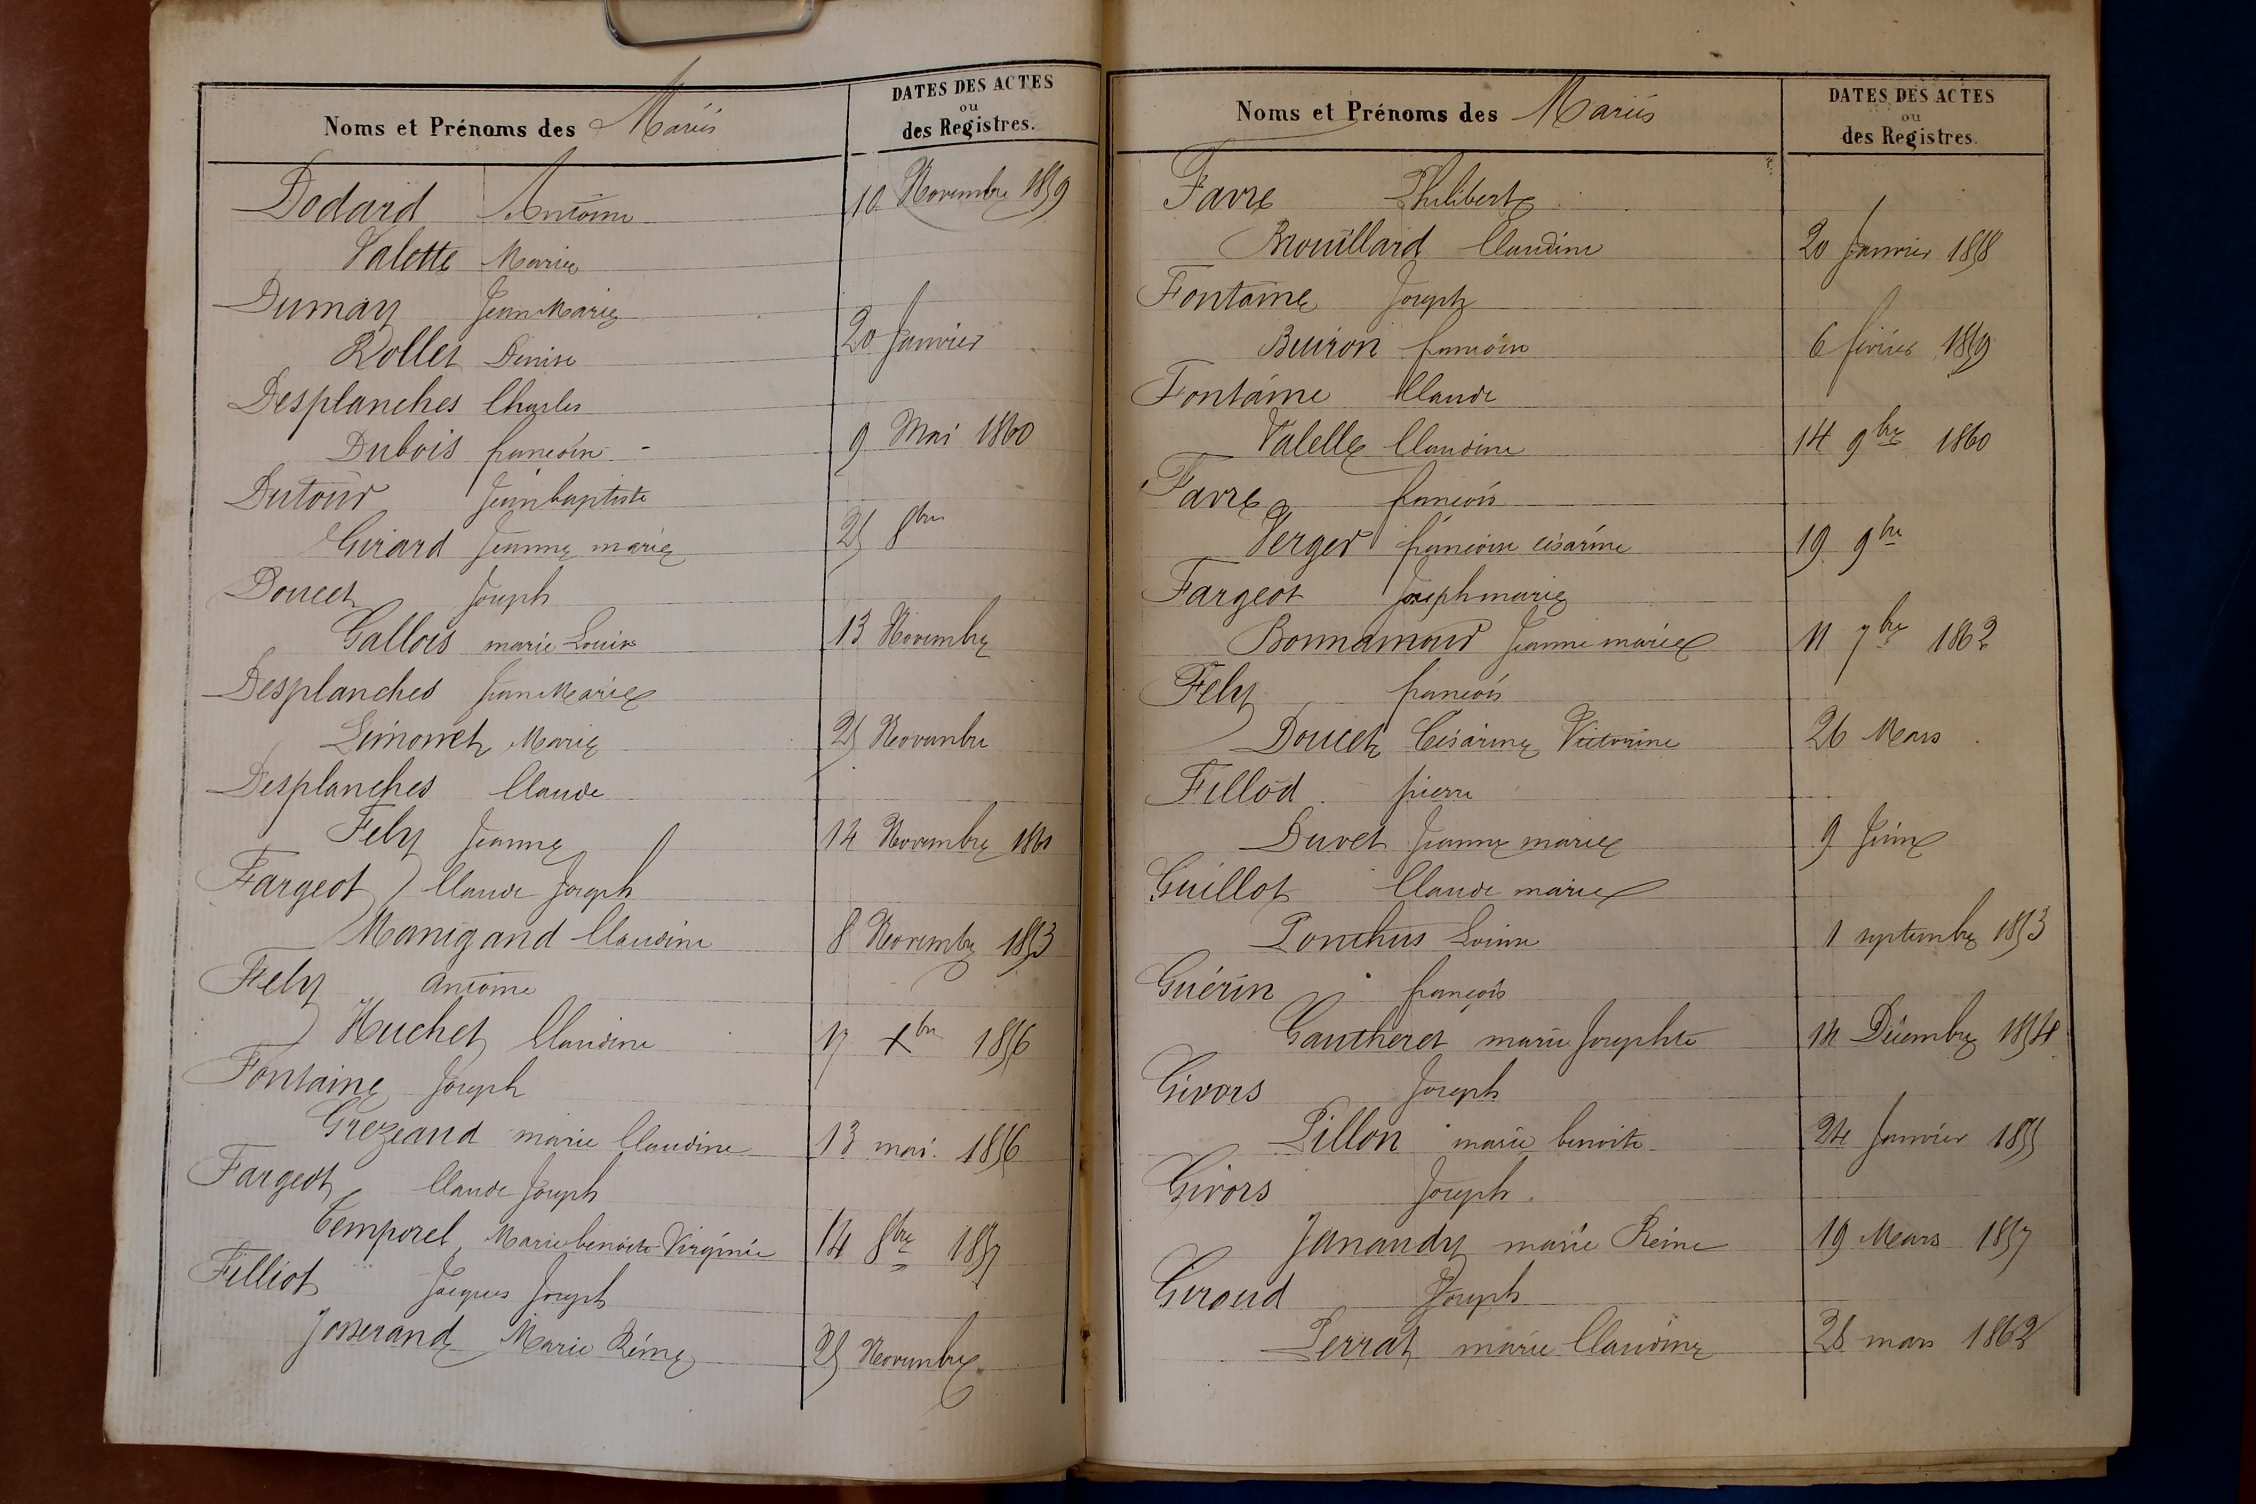 Noms et Prénoms des Mariés
DATES DES ACTES
ou
des Registres.
Dodard Antoine 10 Novembre 1859
Valette Marie
Dumay Jean Marie
Rollet Denise 20 Janvier
Desplanches Charles
Dubois françoise 9 Mai 1860
Dutour Jean baptiste
Girard Jeanne marie 25 8bre
Doucet Joseph
Gallois marie Louise 13 Novembre
Desplanches Jean Marie
Limonet Marie 25 Novembre
Desplanches Claude
Fely Jeanne 14 Novembre 1861
Fargeot Claude Joseph
Manigand Claudine 8 Novembre 1853
Fely antoine
Huchet Claudine 17 Xbre 1856
Fontaine Joseph
Grezeaud marie Claudine 13 mai 1856
Fargeot Claude Joseph
Temporel Marie benoite Virginie 14 8bre 1857
Filliot Jacques Joseph
Josserand Marie Reine 25 Novembre
Noms et Prénoms des Mariés
DATES DES ACTES
ou
des Registres.
Favre Philibert
Brouillard Claudine 20 Janvier 1858
Fontaine Joseph
Buiron françoise 6 février 1859
Fontaine Claude
Valelle Claudine 14 9bre 1860
Favre françois
Verger françoise césarine 19 9bre
Fargeot Joseph marie
Bonnamour Jeanne marie 11 7bre 1862
Fely françois
Doucet Césarine Victorine 26 Mars
Fillod pierre
Duvet Jeanne marie 9 Juin
Guillot Claude marie
Ponthus Louise 1 septembre 1853
Guérin françois
Gautheret marie Josephte 14 Décembre 1854
Givors Joseph
Pillon marie benoite 24 Janvier 1855
Givors Joseph
Janaudy marie Reine 19 Mars 1857
Giroud Joseph
Perrat marie Claudine 28 mars 1862